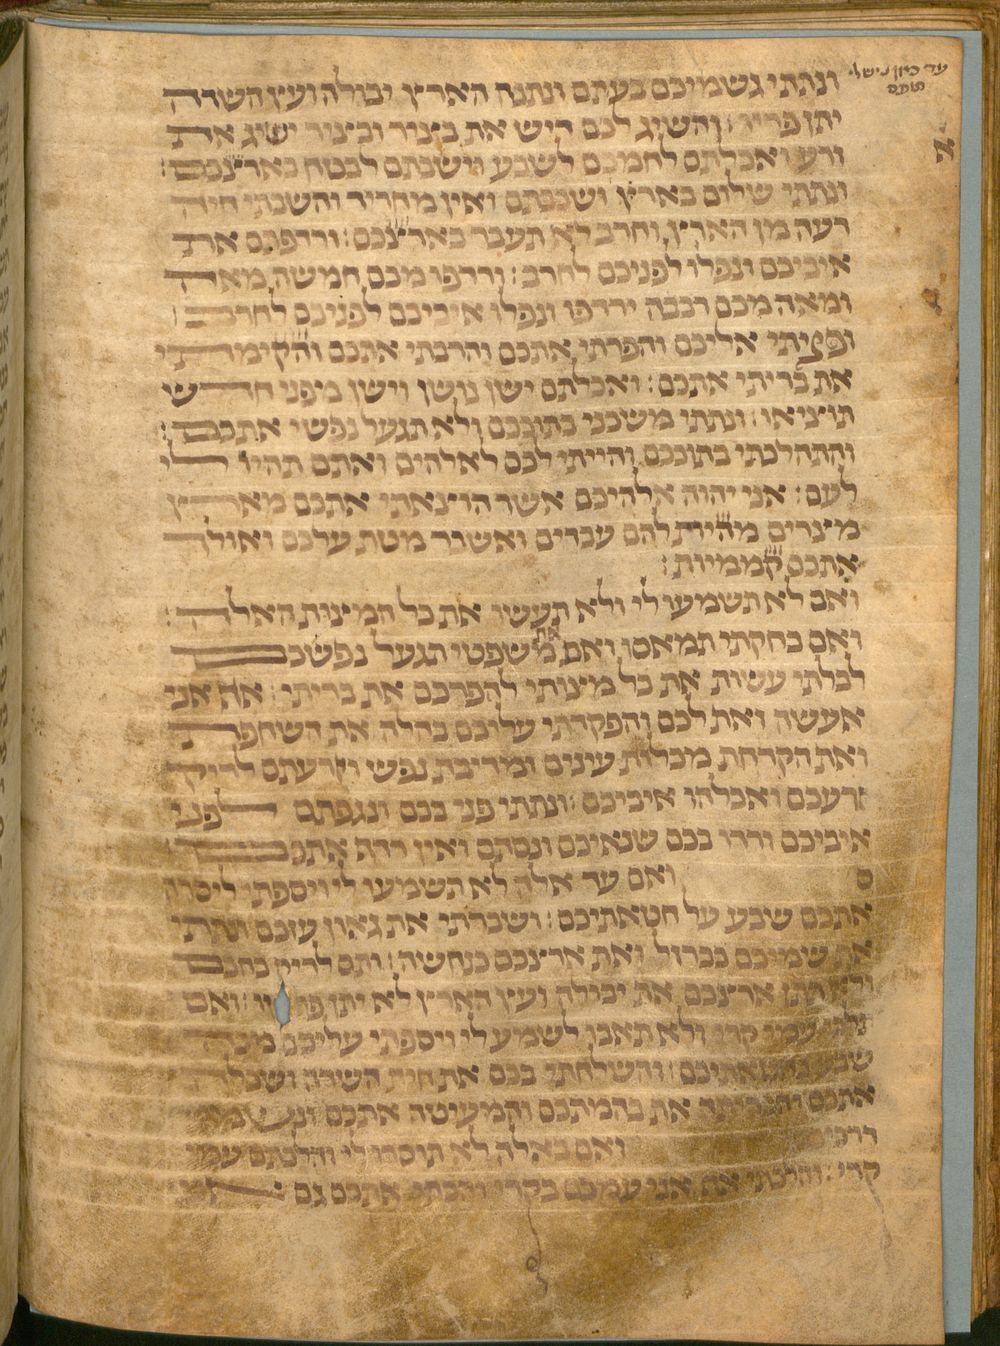 ונתתי גשמיכם בעתם ונתנה הארץ יבולה ועץ השדה
יתן פריו : והשיג לכם דיש את בציר ובציר ישיג את
זרע ואכלתם לחמכם לשבע וישבתם לבטח בארצכם :
ונתתי שלום בארץ ושכבתם ואין מחריד והשבתי חיה
רעה מן הארץ וחרב לא תעבר בארצכם : ורדפתם את
איביכם ונפלו לפניכם לחרב : ורדפו מכם חמשה מאה
ומאה מכם רבבה ירדפו ונפלו איביכם לפניכם לחרב :
ופניתי אליכם והפרתי אתכם והרבתי אתכם והקימתי
את בריתי אתכם : ואכלתם ישן נושן וישן מפני חדש
תוציאו : ונתתי משכני בתוככם ולא תגעל נפשי אתכם :
והתהלכתי בתוככם והייתי לכם לאלהים ואתם תהיו לי
לעם : אני יהוה אלהיכם אשר הוצאתי אתכם מארץ
מצרים מהיות להם עבדים ואשבר מטת עלכם ואולך
אתכם קממיות :
ואם לא תשמעו לי ולא תעשו את כל המצות האלה :
ואם בחקתי תמאסו ואם את משפטי תגעל נפשכם
לבלתי עשות את כל מצותי להפרכם את בריתי : אף אני
אעשה זאת לכם והפקדתי עליכם בהלה את השחפת
ואת הקדחת מכלות עינים ומדיבת נפש וזרעתם לריק
זרעכם ואכלהו איביכם : ונתתי פני בכם ונגפתם לפני
איביכם ורדו בכם שנאיכם ונסתם ואין רדף אתכם
ס ואם עד אלה לא תשמעו לי ויספתי ליסרה
אתכם שבע על חטאתיכם : ושברתי את גאון עזכם ונתתי
את שמיכם כברזל ואת ארצכם כנחשה : ותם לריק כחכם
ולא תתן ארצכם את יבולה ועץ הארץ לא יתן פריו : ואם
תלכו עמי קרי ולא תאבו לשמע לי ויספתי עליכם מכה
שבע כחטאתיכם : והשלחתי בכם את חית השדה ושכלה
אתכם והכריתה את בהמתכם והמעיטה אתכם ונשמו
דרכיכם ואם באלה לא תוסרו לי והלכתם עמי
קרי : והלכתי אף אני עמכם בקרי והכתי אתכם גם